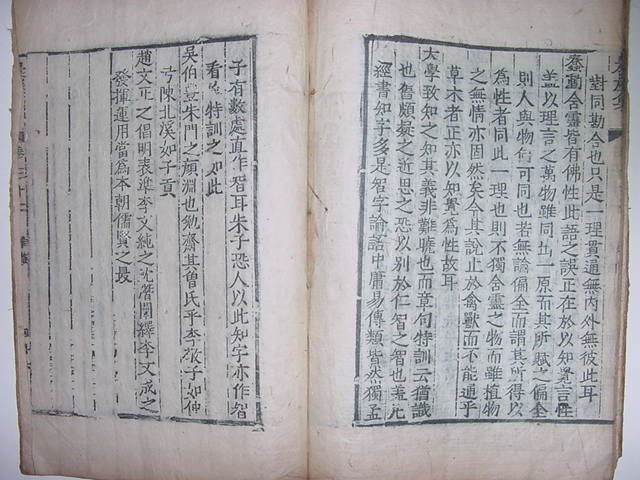 對同勘合也只是一理貫通無內外無彼此耳
蠢動含靈皆有佛性此語之誤正在於以知覺言性
蓋以理言之萬物雖同出一原而其所賦之偏全
則人與物何可同也若無論偏全而謂其所得以
為性者同此一理也則不獨含靈之物而雖植物
之無情亦固然矣今其說止於禽獸而不能通乎
草木者正亦以知覺為性故耳
大學致知之知其義非難曉也而章句特訓云猶識
也舊頗疑之近思之恐以別於仁智之智也蓋凡
經書知字多是智字論語中庸易傳類皆然獨孟
子有數處直作智耳朱子恐人以此知字亦作智
看故特訓之如此
吳伯豐朱門之顏淵也勉齋其曾氏乎李敬子如仲
弓陳北溪如子貢
趙文正之倡明表準李文純之沈潛開繹李文成之
發揮運用當為本朝儒賢之最